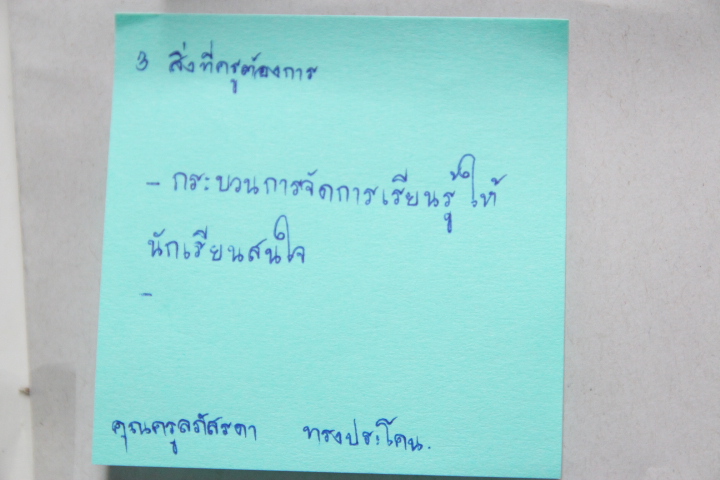 3 สิ่งที่ครูต้องการ
- กระบวนการจัดการเรียนรู้ ให้
นักเรียนสนใจ
-
คุณครูลภัสรดา ทรงประโคน.